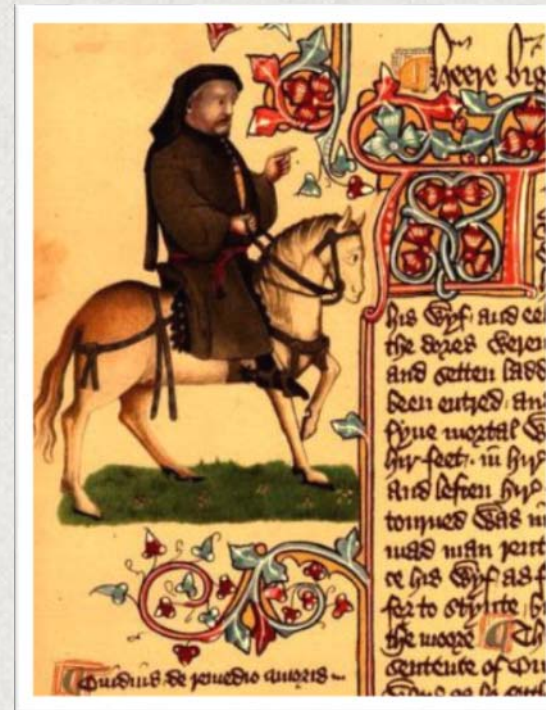 Heere big
his Wyf and ee
the dores Weren
and setten ladd
been entred and
fyue mortal W
hir feet in hir
and leften hir
tourned Was in
mad man rent
ce his Wyf as f
fer to stynte h
the moore Th
sentence of Oui
Ouidius de remedio amoris